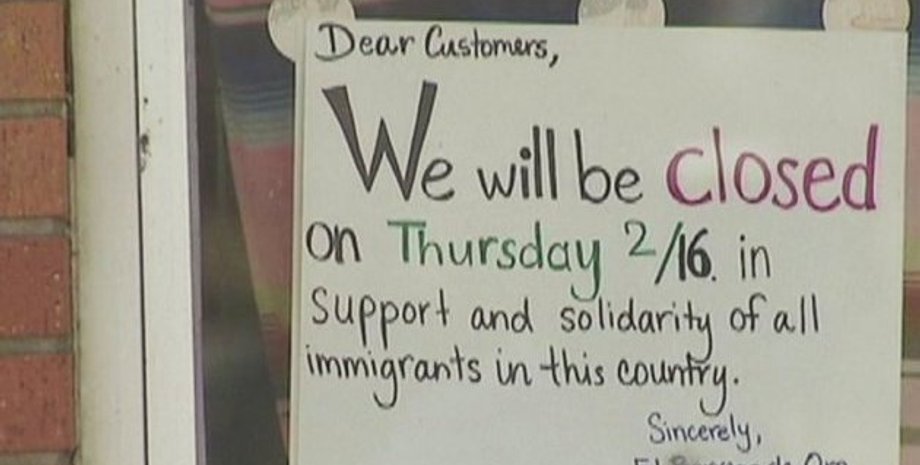 Dear Customers,
We will be closed
on Thursday 2/16. in
Support and solidarity of all
immigrants in this country.
Sincerely,
El